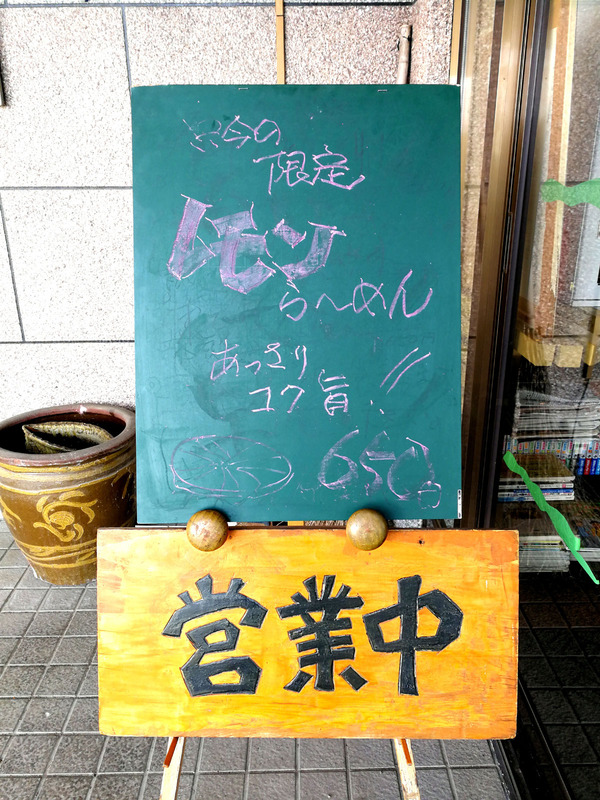 只今の
限定
レモン
らーめん
あっさり
コク旨!!
650
営業中